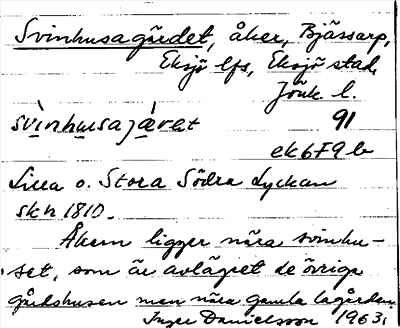 Svinhusagärdet, åker, Bjässarp,
Eksjö lfs, Eksjö stad,
Jönk. l.
svìnhusajǽrət 91
ek 6 F 9 b
Lilla o. Stora Södra Lyckan
skh 1810.
Åkern ligger nära svinhu-
set, som är avlägset de övriga
gårdshusen men nära gamla lagården.
Inger Danielsson 1963.